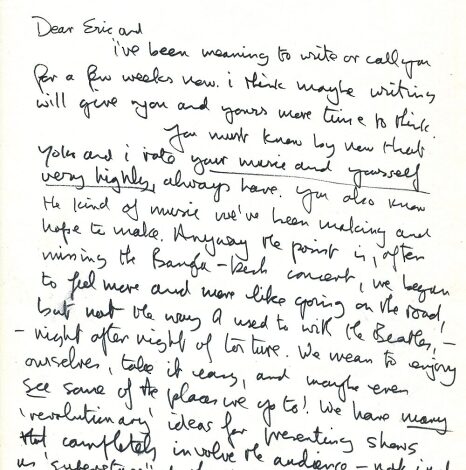 Dear Eric and
i've been meaning to write or call you
for a few weeks now. i think maybe writing
will give you and yours more time to think.
You must know by now that
Yoko and i rate your music and yourself
very highly, always have. You also know
the kind of music we've been making and
hope to make. Anyway the point is, after
missing the Bangla-Desh concert, we began
to feel more and more like going on the road,
but not the way I used to with the Beatles, -
- night after night of torture. We mean to enjoy
ourselves, take it easy, and maybe even
see some of the places we go to! We have many
'revolutionary' ideas for presenting shows
that completely involve the audience - not just
us 'superstars'